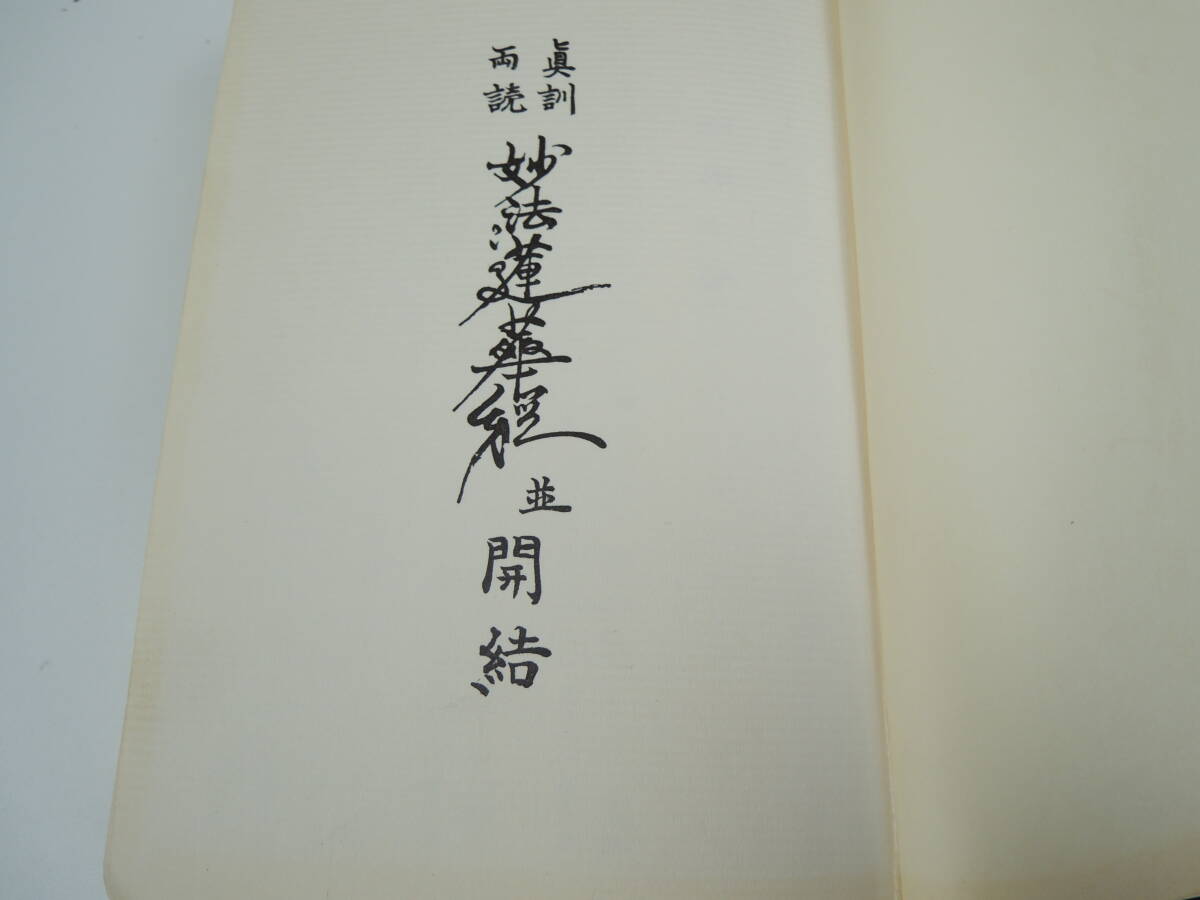 眞訓
両読
妙法蓮華経
並
開結